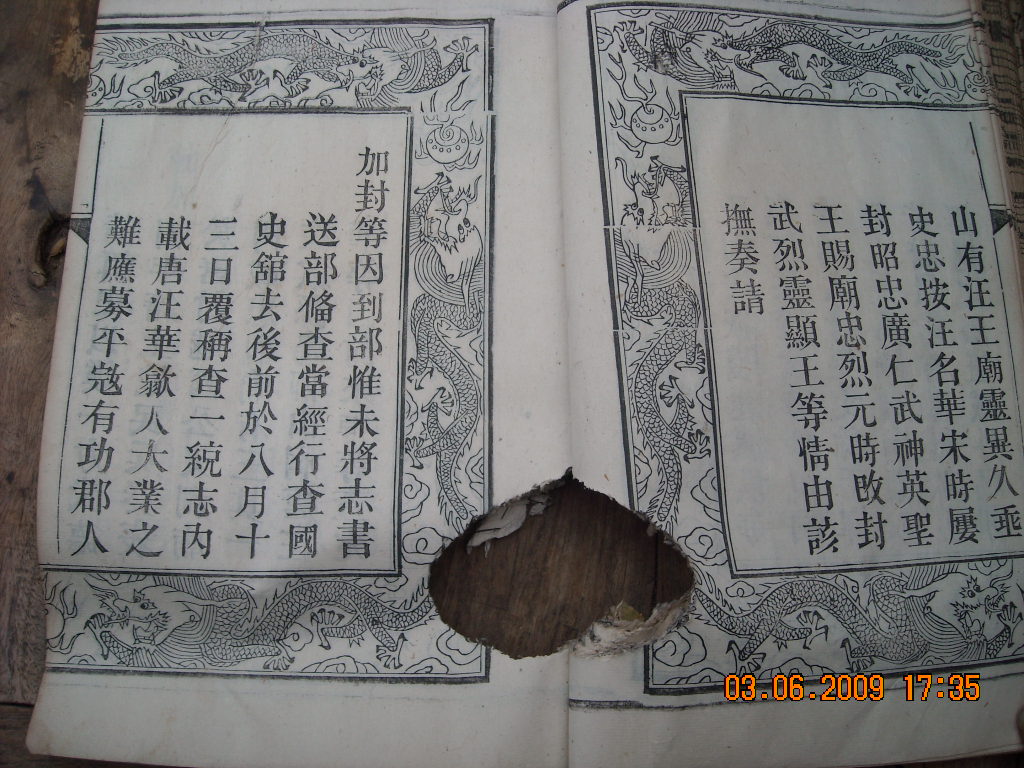 山有汪王廟靈異久垂
史忠按汪名華宋時屢
封昭忠廣仁武神英聖
王賜廟忠烈元時改封
武烈靈顯王等情由該
撫奏請
加封等因到部惟未將志書
送部俻查當經行查國
史舘去後前於八月十
三日覆稱查一統志內
載唐汪華歙人大業之
難應募平寇有功郡人
03.06.2009 17:35